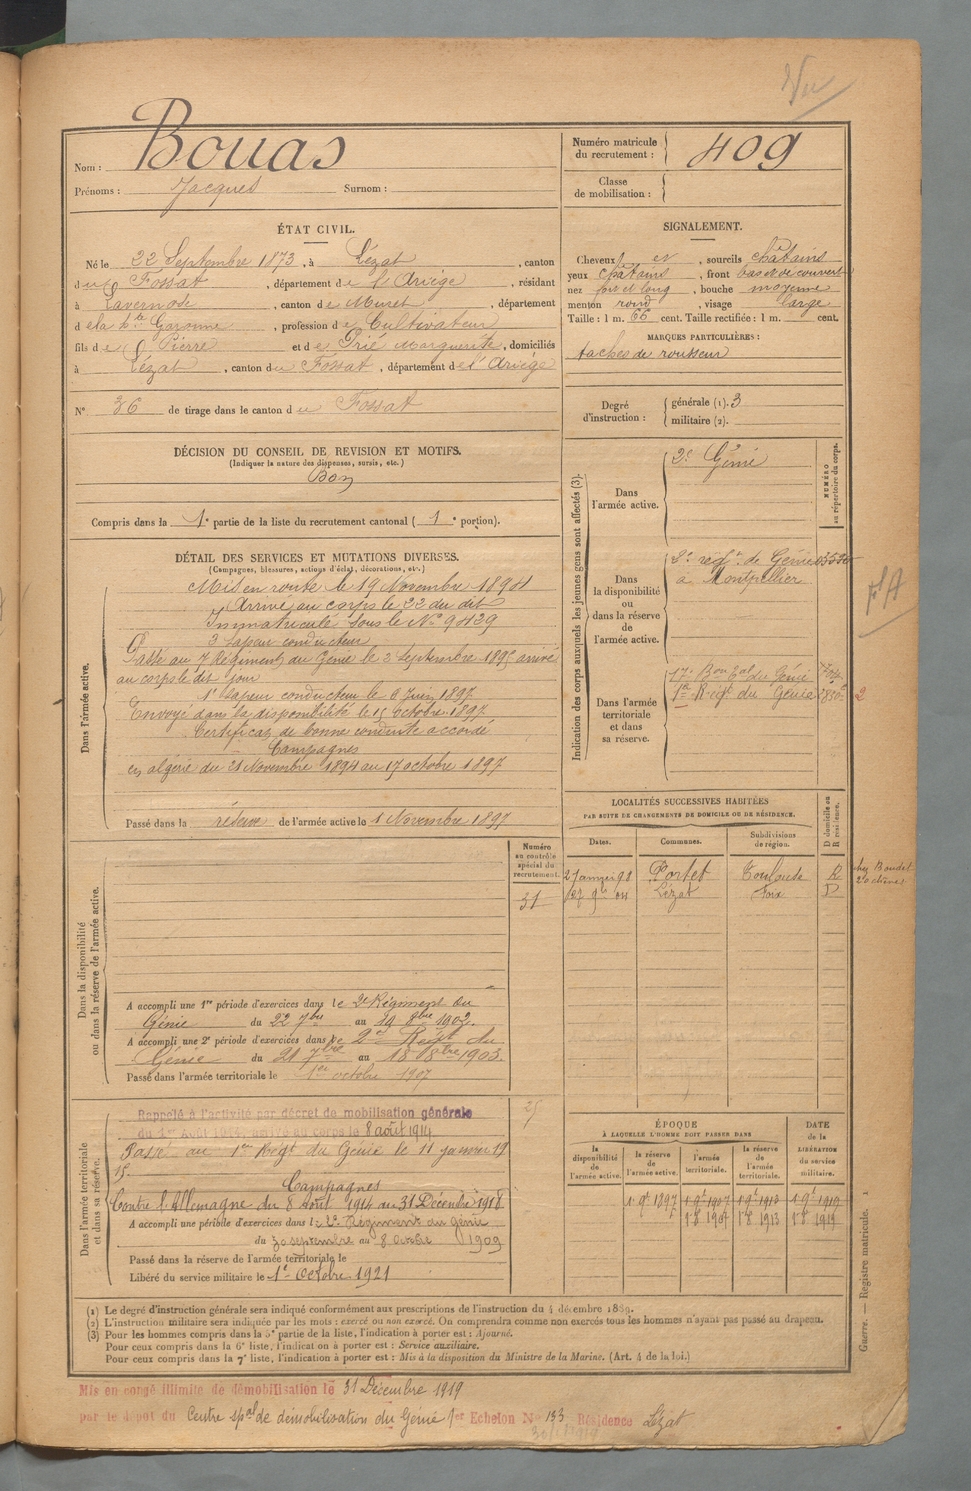 Vu
Nom : Bouas
Prénoms : Jacques Surnom :
Numéro matricule du recrutement : 409
Classe de mobilisation :
ÉTAT CIVIL.
Né le 22 Septembre 1873, à Lézat, canton
du Fossat, département de l'Ariège, résidant
à Lavernose, canton de Muret, département
de la Hte Garonne, profession de Cultivateur
fils de Pierre et de Prié Marguerite, domiciliés
à Lézat, canton du Fossat, département de l'Ariège
N° 36 de tirage dans le canton du Fossat
SIGNALEMENT.
Cheveux et, sourcils châtains
yeux châtains, front bas et découvert
nez fort et long, bouche moyenne
menton rond, visage large
Taille : 1 m. 66 cent. Taille rectifiée : 1 m. cent.
MARQUES PARTICULIÈRES :
taches de rousseur
Degré d'instruction : générale (1). 3
militaire (2).
DÉCISION DU CONSEIL DE REVISION ET MOTIFS.
(Indiquer la nature des dispenses, sursis, etc.)
Bon
Compris dans la 1e partie de la liste du recrutement cantonal (1e portion).
DÉTAIL DES SERVICES ET MUTATIONS DIVERSES.
(Campagnes, blessures, actions d'éclat, décorations, etc.)
Dans l'armée active.
Mis en route le 19 Novembre 1894
Arrivé au corps le 22 du dit
Immatriculé sous le No 9429
Sapeur conducteur
Passé au 7 Régiment du Génie le 2 Septembre 1895 arrivé
au corps le dit jour
1e Sapeur conducteur le 6 Juin 1897
Envoyé dans la disponibilité le 15 Octobre 1897
Certificat de bonne conduite accordé
Campagnes
en algérie du 21 Novembre 1894 au 17 octobre 1897
Passé dans la réserve de l'armée active le 1 Novembre 1897
Indication des corps auxquels les jeunes gens sont affectés (3).
NUMÉRO au répertoire du corps.
Dans l'armée active.
2e Génie
Dans la disponibilité ou dans la réserve de l'armée active.
2e régt de Génie
à Montpellier
Dans l'armée territoriale et dans sa réserve.
17e Bon Eal du Génie
1er Régt du Génie
2
LOCALITÉS SUCCESSIVES HABITÉES
PAR SUITE DE CHANGEMENTS DE DOMICILE OU DE RÉSIDENCE.
Dates. Communes. Subdivisions de région. D domicile ou R résidence.
2 Janvier 98 Portet Toulouse R
27 9e 04 Lézat Foix D
Numéro au contrôle spécial du recrutement.
31
Dans la disponibilité ou dans la réserve de l'armée active.
A accompli une 1re période d'exercices dans le 2e Régiment du
Génie du 22 7bre au 19 8bre 1902.
A accompli une 2e période d'exercices dans le 2e Régt du
Génie du 21 7bre au 18 8bre 1903.
Passé dans l'armée territoriale le 1er octobre 1907
Dans l'armée territoriale et dans sa réserve.
Rappelé à l'activité par décret de mobilisation générale
du 1er Août 1914, arrivé au corps le 8 août 1914
Passé au 1er Régt du Génie le 11 janvier 19
15.
Campagnes
Contre l'Allemagne du 8 Août 1914 au 31 Décembre 1918
A accompli une période d'exercices dans le 2e Régiment du génie
du 30 septembre au 8 Octobre 1909
Passé dans la réserve de l'armée territoriale le
Libéré du service militaire le 1er Octobre 1921
ÉPOQUE
À LAQUELLE L'HOMME DOIT PASSER DANS
la disponibilité de l'armée active. la réserve de l'armée active. l'armée territoriale. la réserve de l'armée territoriale. DATE de la LIBÉRATION du service militaire.
(1) Le degré d'instruction générale sera indiqué conformément aux prescriptions de l'instruction du 4 décembre 1889.
(2) L'instruction militaire sera indiquée par les mots : exercé ou non exercé. On comprendra comme non exercés tous les hommes n'ayant pas passé au drapeau.
(3) Pour les hommes compris dans la 5e partie de la liste, l'indication à porter est : Ajourné.
Pour ceux compris dans la 6e liste, l'indication à porter est : Service auxiliaire.
Pour ceux compris dans la 7e liste, l'indication à porter est : Mis à la disposition du Ministre de la Marine. (Art. 4 de la loi.)
Guerre. — Registre matricule. 1
Mis en congé illimité de démobilisation le 31 Décembre 1919
par le dépôt du Centre spal de démobilisation du Génie 1er Echelon No 133 Résidence Lézat